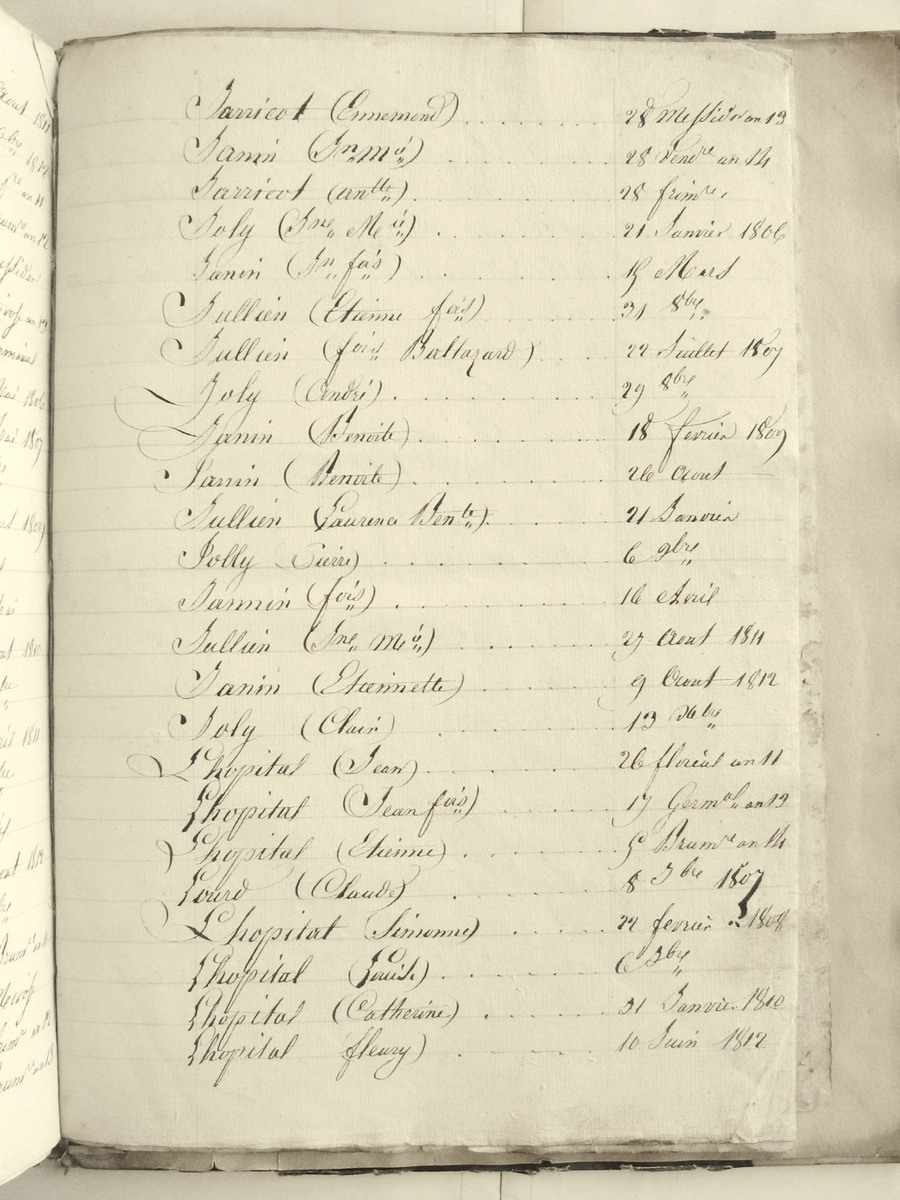 Jarricot (Ennemond) . . . . . . . . 28 Messidor an 13
Janin (Jn Mie) . . . . . . . . 28 Vendre an 14
Jarricot (antte) . . . . . . . . 28 frimre
Joly (Jne Mie) . . . . . . . . 21 Janvier 1806
Janin (Jn fois) . . . . . . . . 15 Mars
Jullien (Etienne fois) . . . . . . . . 31 8bre
Jullien (fois Baltazard) . . . . . . . . 22 Juillet 1807
Joly (André) . . . . . . . . 29 8bre
Janin (Benoite) . . . . . . . . 18 fevrier 1809
Janin (Benoite) . . . . . . . . 26 Aout
Jullien (Laurence Bente) . . . . . . . . 21 Janvier
Jolly (Pierre) . . . . . . . . 6 9bre
Jannin (fois) . . . . . . . . 16 Avril
Jullien (Jne Mie) . . . . . . . . 27 Aout 1811
Janin (Etiennette) . . . . . . . . 9 Aout 1812
Joly (Clair) . . . . . . . . 13 Xbre
Lhopital (Jean) . . . . . . . . 26 floréal an 11
Lhopital (Jean fois) . . . . . . . . 17 Germal an 13
Lhopital (Etienne) . . . . . . . . 5 Brumre an 14
Lourd (Claude) . . . . . . . . 8 7bre 1807
Lhopital Simonne) . . . . . . . . 22 fevrier 1808
Lhopital (Louise) . . . . . . . . 6 7bre
Lhopital (Catherine) . . . . . . . . 31 Janvier 1810
Lhopital fleury) . . . . . . . . 10 Juin 1812